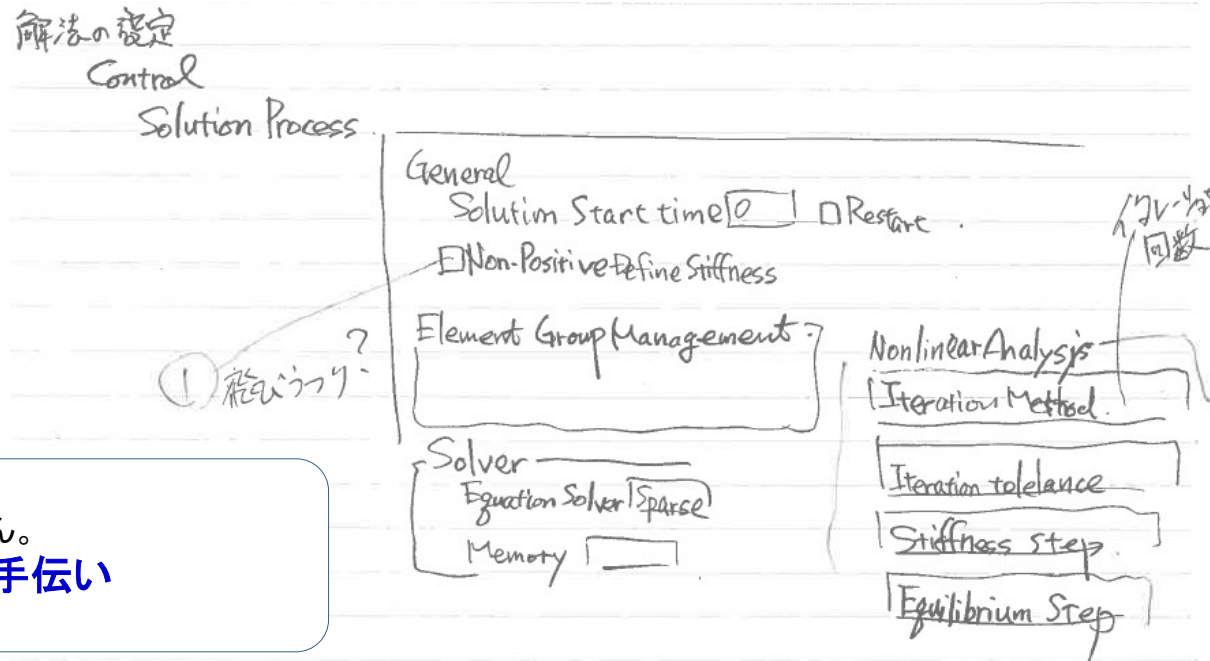 解法の設定
Control
Solution Process
General
Solution Start time 0 Restart.
Non-Positive Define Stiffness
Element Group Management
① 飛びうつり?
Solver
Equation Solver Sparse
Memory
回数
Nonlinear Analysis
Iteration Method.
Iteration tolelance
Stiffness Step.
Equilibrium Step
ん。
手伝い